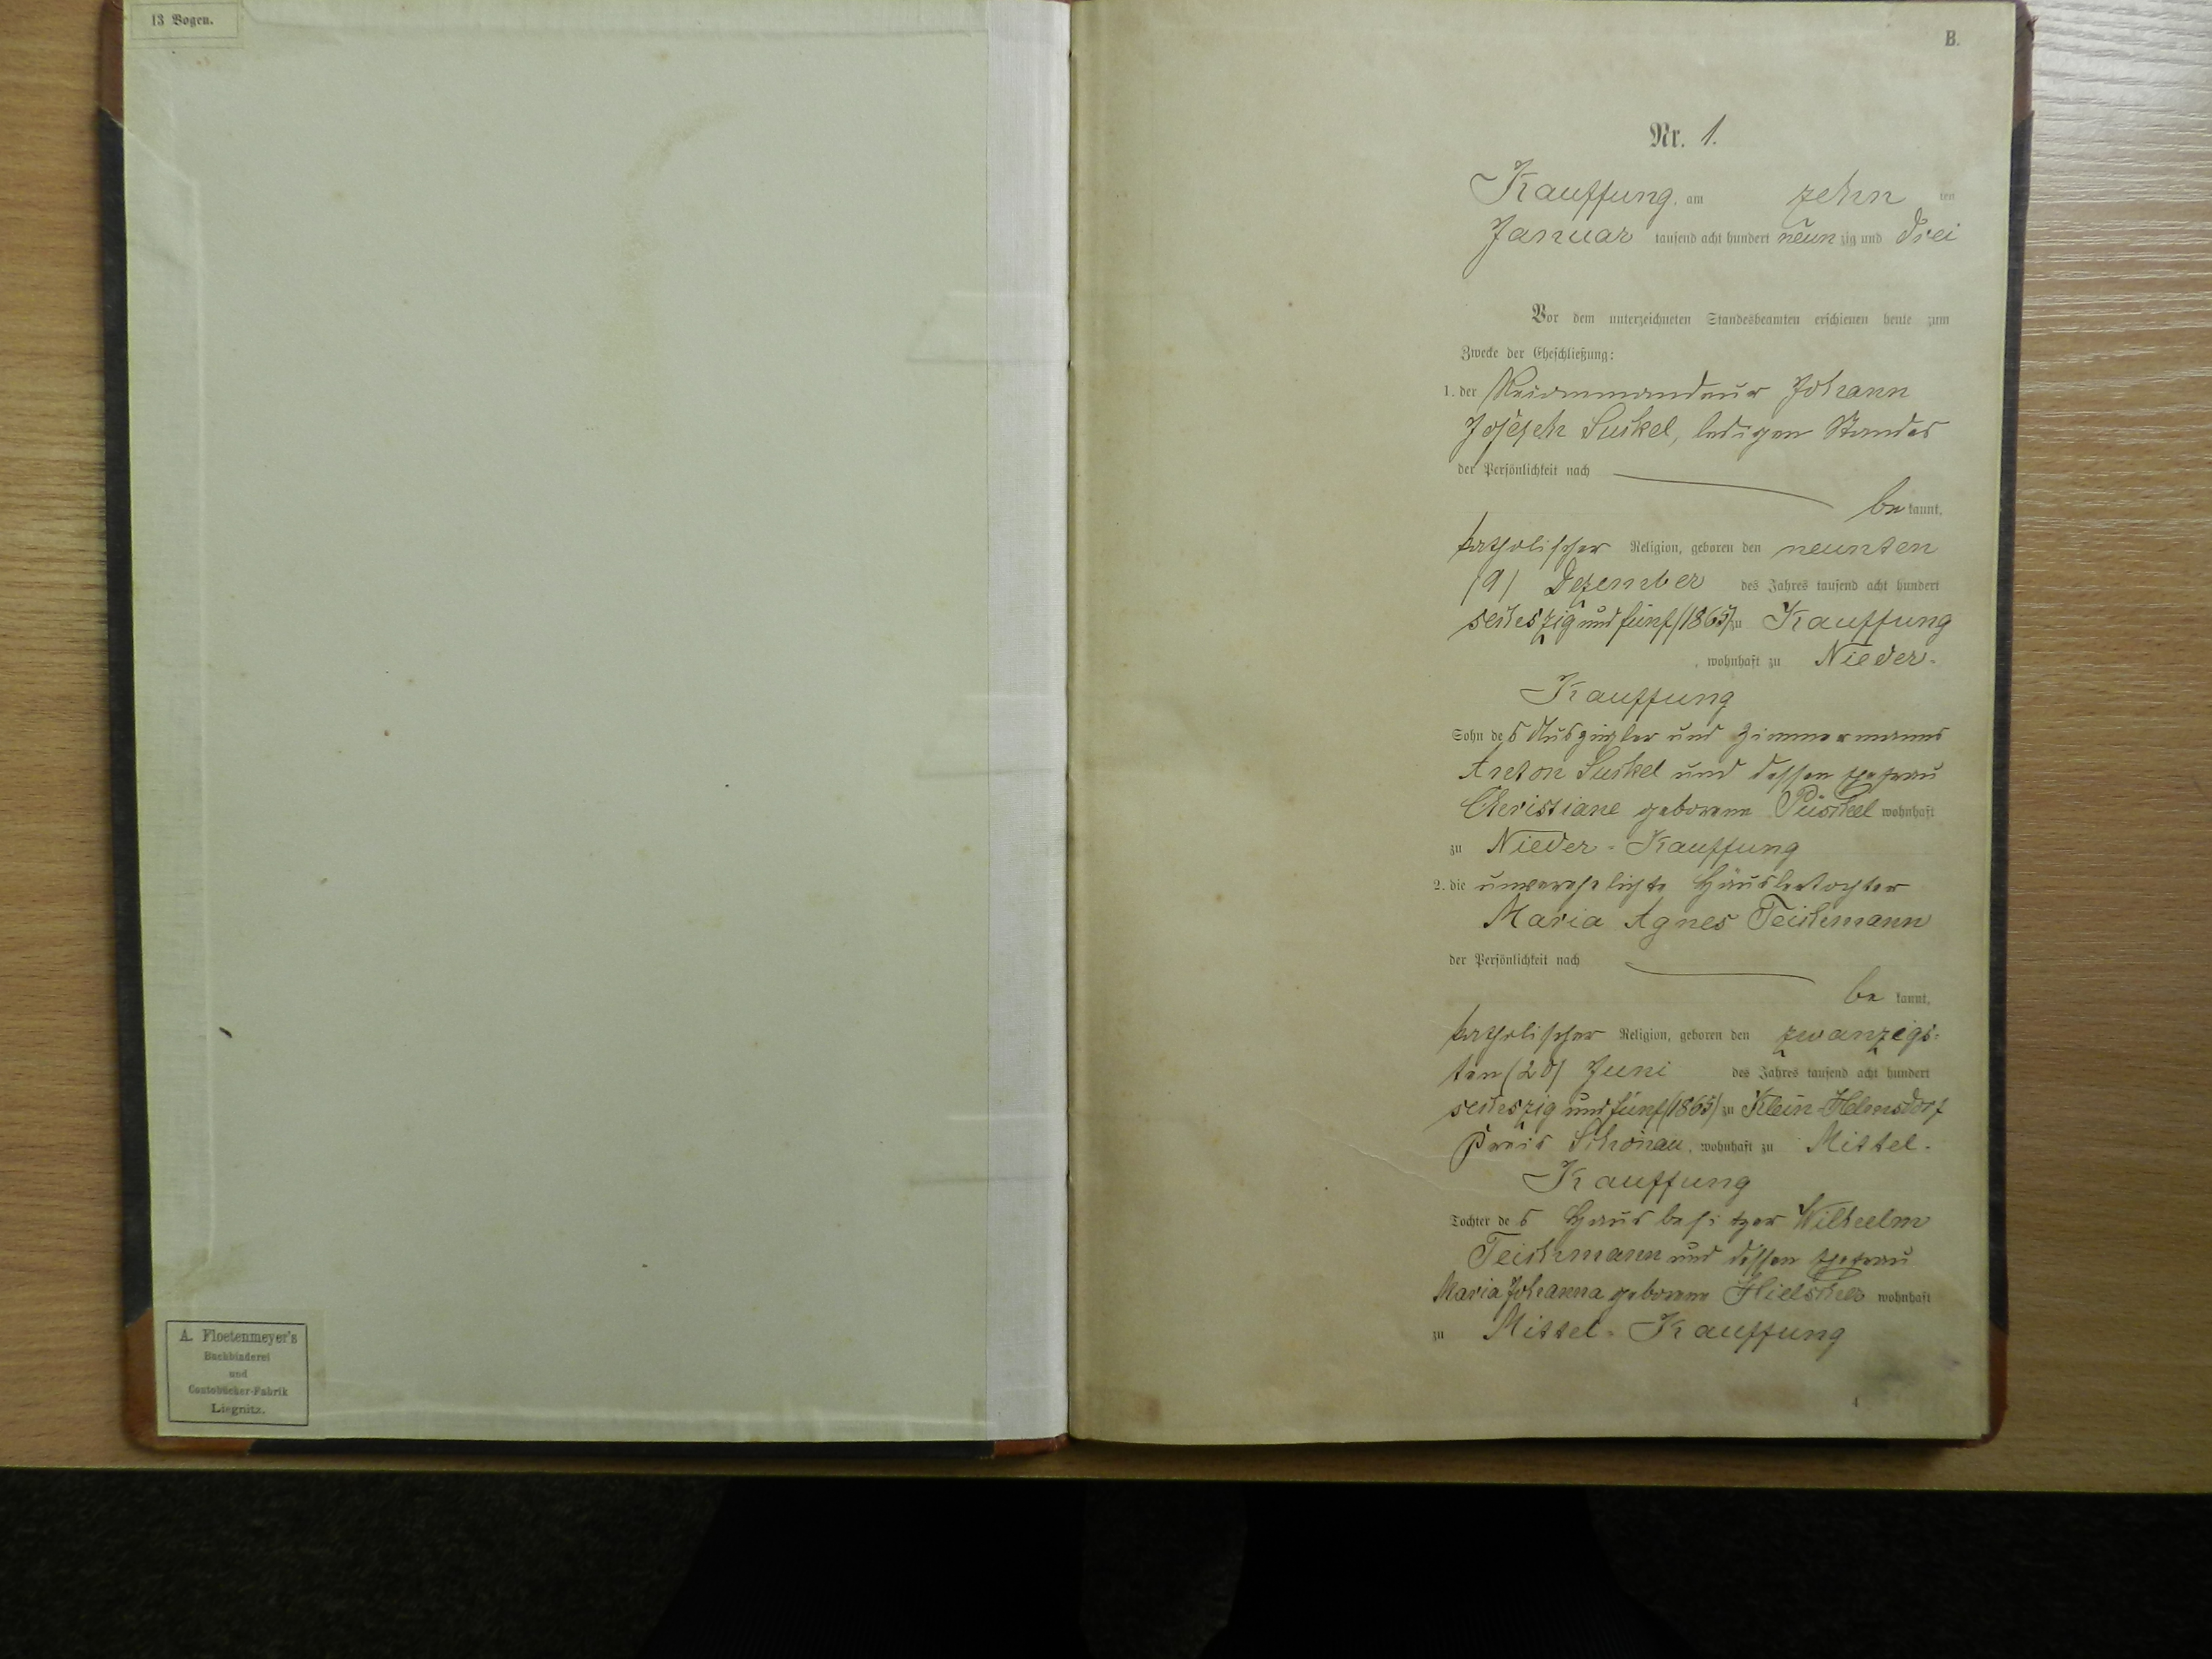 13 Bogen.
A. Floetenmeyer's
Buchbinderei
und
Contobücher-Fabrik
Liegnitz.
B.
Nr. 1.
Kauffung, am zehn ten
Januar tausend acht hundert neun zig und drei
Vor dem unterzeichneten Standesbeamten erschienen heute zum
Zwecke der Eheschließung:
1. der Johann
Joseph Suckel, ledigen Standes
der Persönlichkeit nach
be kannt,
katholischer Religion, geboren den neunten
(9) Dezember des Jahres tausend acht hundert
sechszig und fünf (1865) zu Kauffung
, wohnhaft zu Nieder-
Kauffung
Sohn des Auszügler und Zimmermanns
Anton Suckel und dessen Ehefrau
Christiane geborene Püschel wohnhaft
zu Nieder-Kauffung
2. die unverehelichte Häuslertochter
Maria Agnes Teichmann
der Persönlichkeit nach
be kannt,
katholischer Religion, geboren den zwanzigs-
ten (20) Juni des Jahres tausend acht hundert
sechszig und fünf (1865) zu Klein-Helmsdorf
Kreis Schönau, wohnhaft zu Mittel-
Kauffung
Tochter des Hausbesitzer Wilhelm
Teichmann und dessen Ehefrau
Maria Johanna geborene Hielscher wohnhaft
zu Mittel-Kauffung
4